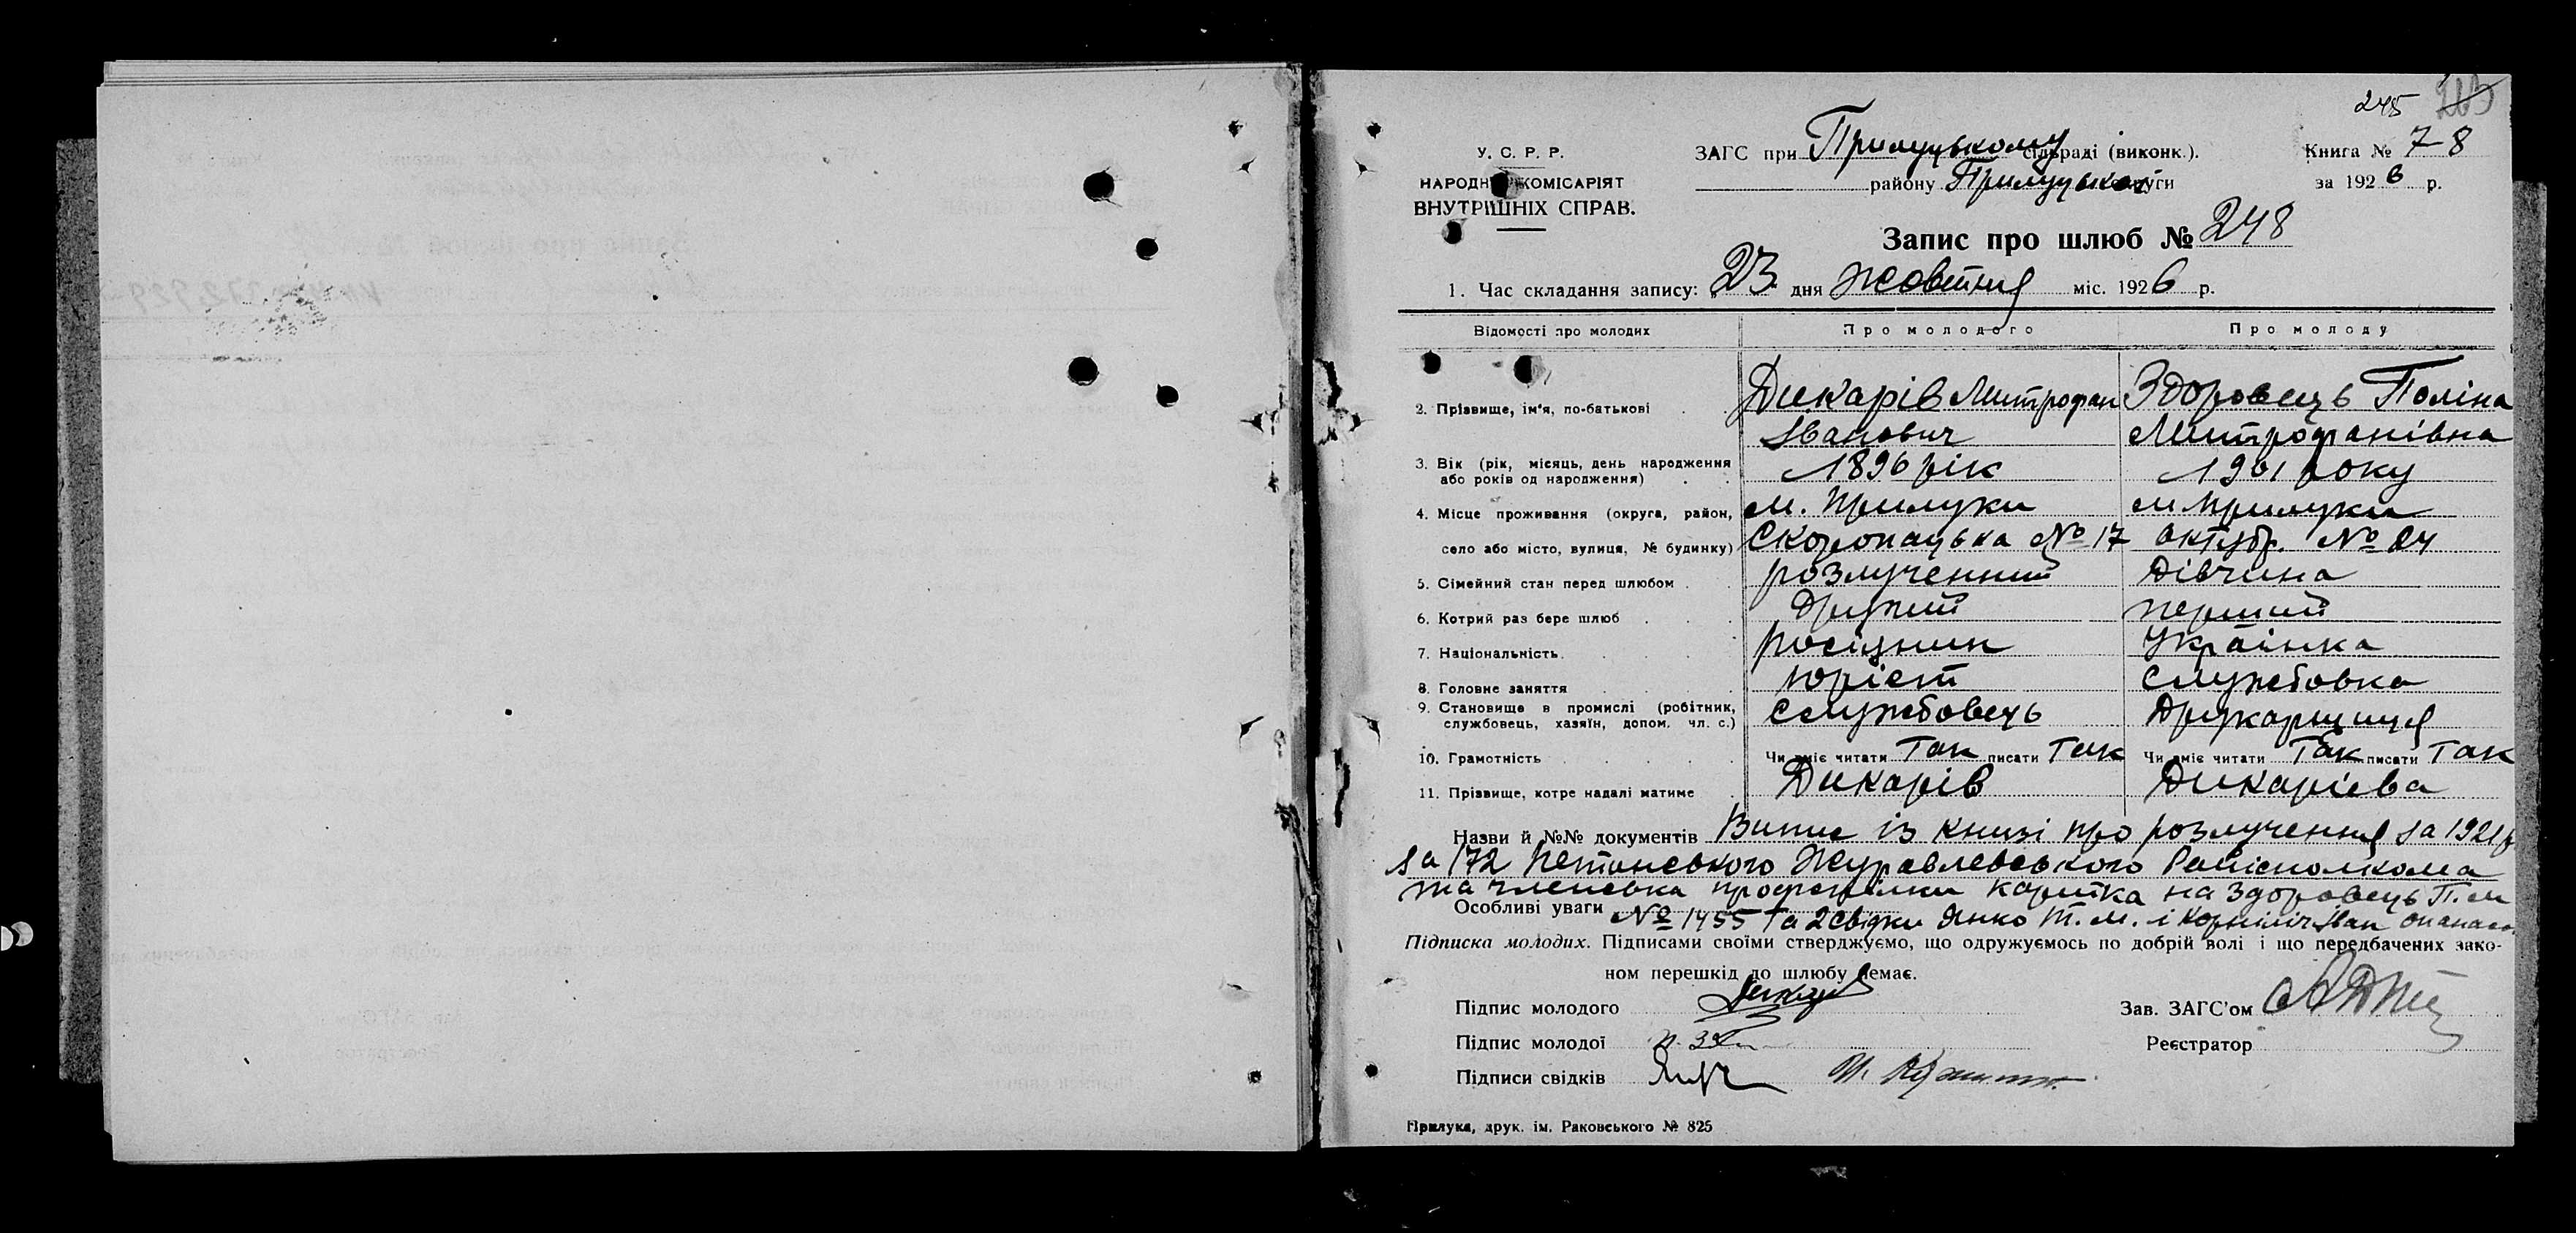 245 263
У. С. Р. Р.
НАРОДНИЙ КОМІСАРІЯТ
ВНУТРІШНІХ СПРАВ.
ЗАГС при Прилуцькому сільраді (виконк.).
району Прилуцької округи
Книга № 7-8
за 1926 р.
Запис про шлюб № 248
1. Час складання запису: 23 дня жовтня міс. 1926 р.
Відомості про молодих Про молодого Про молоду
2. Прізвище, ім'я, по-батькові Дикарів Митрофан Здоровець Поліна
Іванович Митрофанівна
3. Вік (рік, місяць, день народження 1896 рік 1901 року
або років од народження)
4. Місце проживання (округа, район, м. Прилуки м Прилуки
село або місто, вулиця, № будинку) Скоропацька № 17 октубр. № 24
5. Сімейний стан перед шлюбом розлученний Дівчина
6. Котрий раз бере шлюб Другий перший
7. Національність росіянин Українка
8. Головне заняття юріст служебовка
9. Становище в промислі (робітник, служебовець Друкарщиця
службовець, хазяїн, допом. чл. с.)
10. Грамотність Чи вміє читати Так писати Так Чи вміє читати Так писати Так
11. Прізвище, котре надалі матиме Дикарів Дикарієва
Назви й №№ документів Випис із книзі про розлучення за 1921 р
за 172 Журавлевського
та членська профспілки картка на Здоровець П. М
Особливі уваги № 1455 та 2 свідки Янко Т. М. і Іван
Підписка молодих. Підписами своїми стверджуємо, що одружуємось по добрій волі і що передбачених зако-
ном перешкід до шлюбу немає.
Підпис молодого Дикарів
Зав. ЗАГС'ом
Підпис молодої
Реєстратор
Підписи свідків
Прилука, друк. ім. Раковського № 825